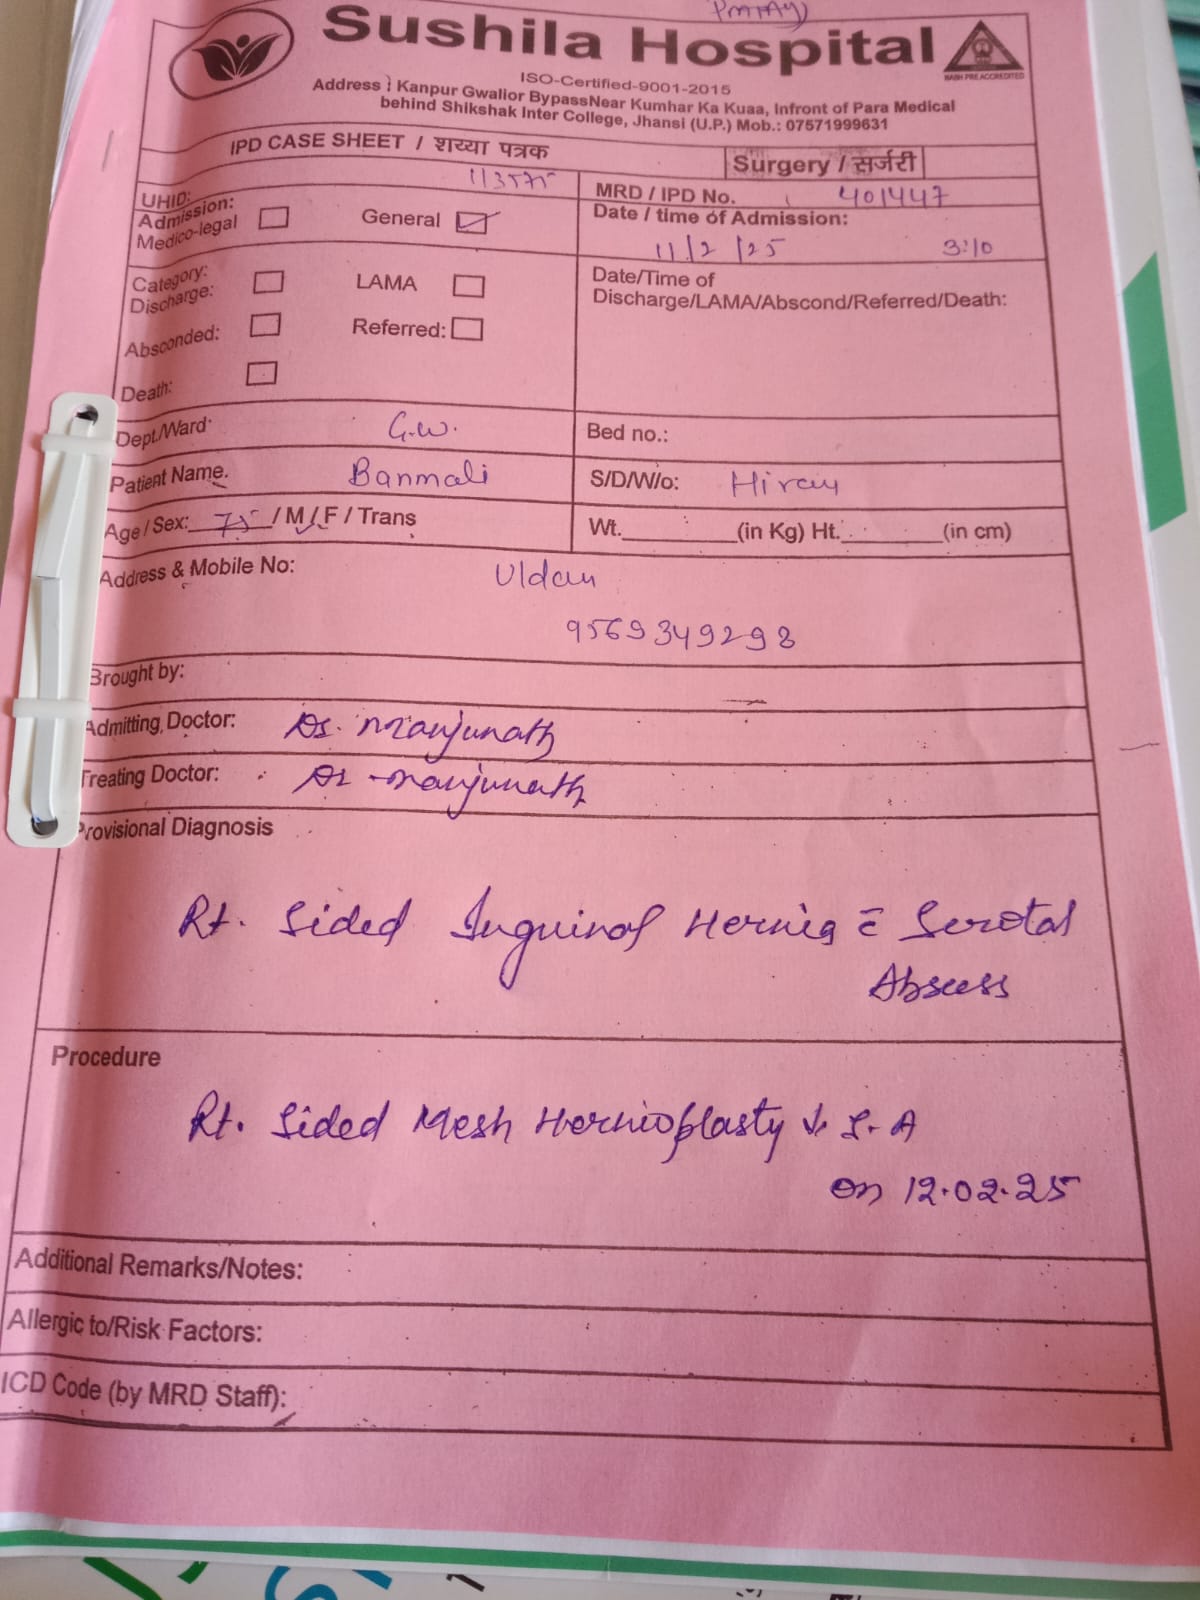 PMJAY
Sushila Hospital
NABH PRE ACCREDITED
ISO-Certified-9001-2015
Address : Kanpur Gwalior BypassNear Kumhar Ka Kuaa, Infront of Para Medical
behind Shikshak Inter College, Jhansi (U.P.) Mob.: 07571999631
IPD CASE SHEET / शय्या पत्रक
Surgery / सर्जरी
UHID: 113575
MRD / IPD No. 401447
Admission:
Medico-legal General
Date / time of Admission:
11/2/25 3:10
Category:
Discharge: LAMA
Date/Time of
Discharge/LAMA/Abscond/Referred/Death:
Absconded: Referred:
Death:
Dept./Ward: G.W. Bed no.:
Patient Name. Banmali S/D/W/o:
Age / Sex: 75 / M / F / Trans Wt. (in Kg) Ht. (in cm)
Address & Mobile No: Uldan
9569349293
Brought by:
Admitting Doctor: Dr. Manjunath
Treating Doctor: Dr Manjunath
Provisional Diagnosis
Rt. Sided Inguinal Hernia c̄ Scrotal
Abscess
Procedure
Rt. Sided Mesh Hernioplasty S. A
on 12.02.25
Additional Remarks/Notes:
Allergic to/Risk Factors:
ICD Code (by MRD Staff):